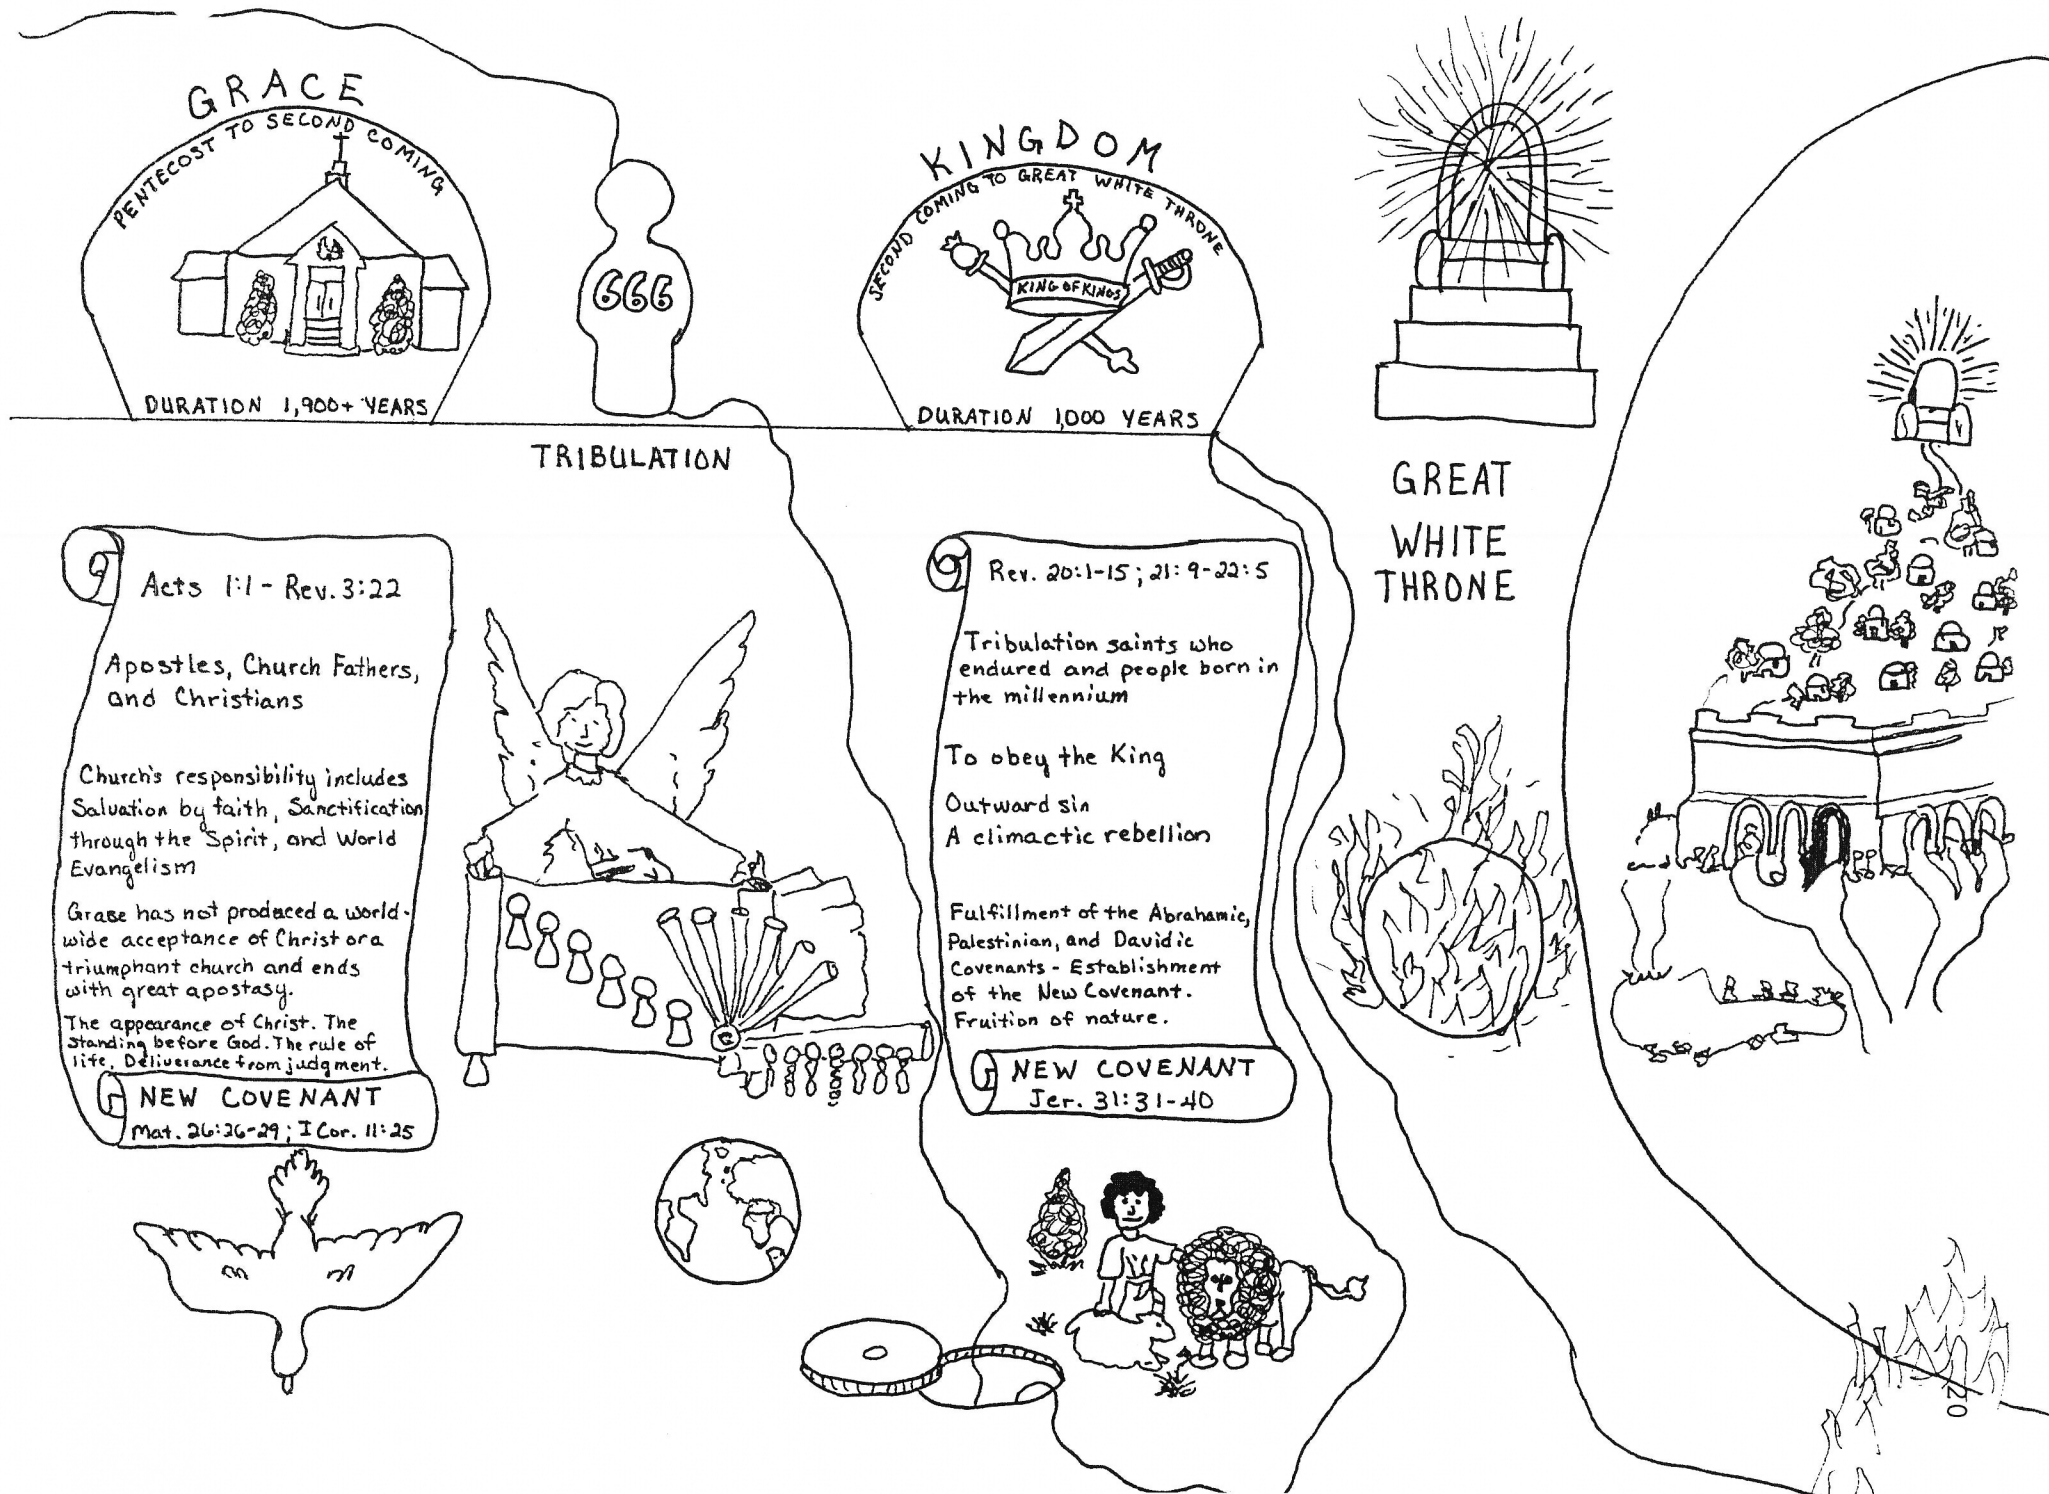 GRACE
PENTECOST TO SECOND COMING
DURATION 1,900+ YEARS
666
TRIBULATION
KINGDOM
SECOND COMING TO GREAT WHITE THRONE
KING OF KINGS
DURATION 1,000 YEARS
GREAT
WHITE
THRONE
Acts 1:1 - Rev. 3:22
Apostles, Church Fathers,
and Christians
Church's responsibility includes
Salvation by faith, Sanctification
through the Spirit, and World
Evangelism
Grace has not produced a world-
wide acceptance of Christ or a
triumphant church and ends
with great apostasy.
The appearance of Christ. The
standing before God. The rule of
life. Deliverance from judgment.
NEW COVENANT
Mat. 26:26-29; I Cor. 11:25
Rev. 20:1-15; 21:9-22:5
Tribulation saints who
endured and people born in
the millennium
To obey the King
Outward sin
A climactic rebellion
Fulfillment of the Abrahamic,
Palestinian, and Davidic
Covenants - Establishment
of the New Covenant.
Fruition of nature.
NEW COVENANT
Jer. 31:31-40
20